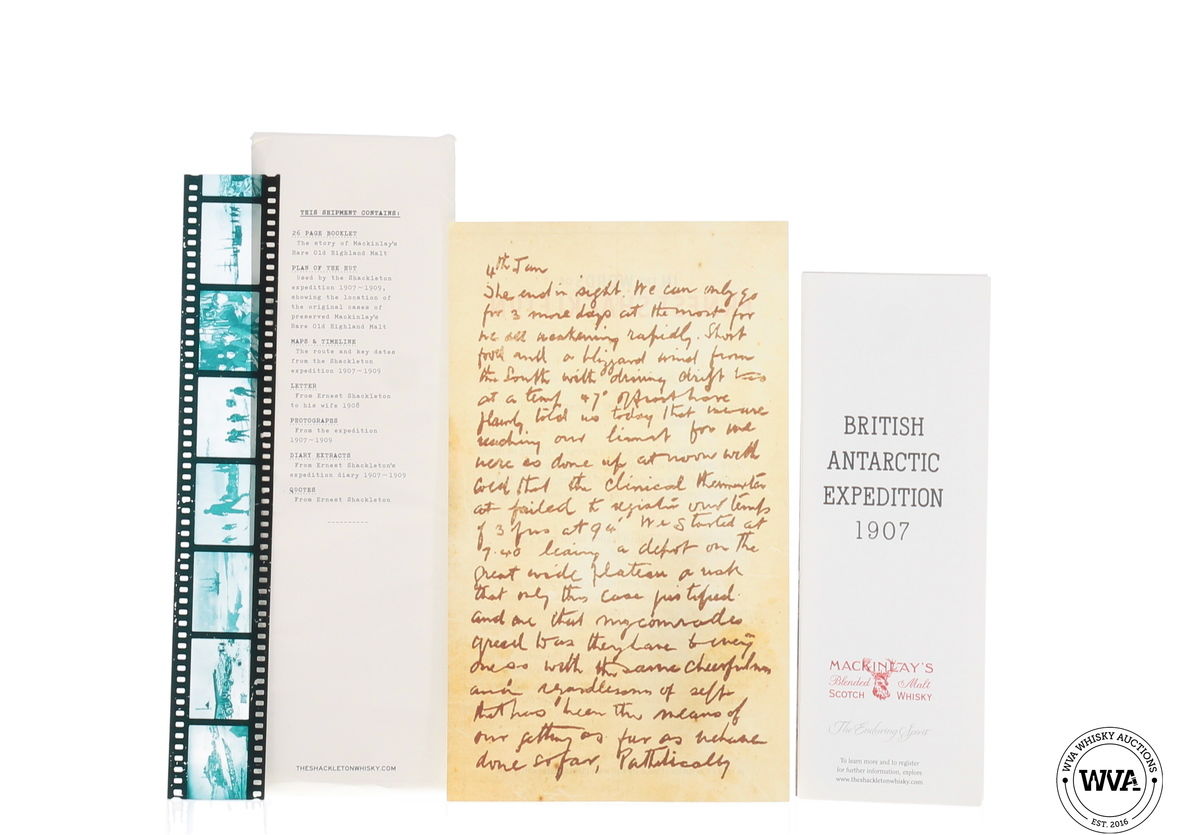 THIS SHIPMENT CONTAINS:
26 PAGE BOOKLET
The story of Mackinlay's
Rare Old Highland Malt
PLAN OF THE HUT
Used by the Shackleton
expedition 1907-1909,
showing the location of
the original cases of
preserved Mackinlay's
Rare Old Highland Malt
MAPS & TIMELINE
The route and key dates
from the Shackleton
expedition 1907-1909
LETTER
From Ernest Shackleton
to his wife 1908
PHOTOGRAPHS
From the expedition
1907-1909
DIARY EXTRACTS
From Ernest Shackleton's
expedition diary 1907-1909
QUOTES
From Ernest Shackleton
THESHACKLETONWHISKY.COM
4th Jan
The end in sight. We can only go
for 3 more days at the most for
we are weakening rapidly. Short
food and a blizzard wind from
the South with driving drift
at a temp 47° of frost have
plainly told us today that we are
reaching our limit for we
were so done up at noon with
cold that the clinical thermometer
failed to register our temps
of 3 of us at 94° We started at
7.40 leaving a depot on the
great wide plateau a risk
that only this case justified
and one that my comrades
agreed to as they have
with the same cheerfulness
and regardlessness of self
that has been the means of
our getting as far as we have
done so far, Pathetically
BRITISH
ANTARCTIC
EXPEDITION
1907
MACKINLAY'S
Blended Malt
SCOTCH WHISKY
The Enduring Spirit
To learn more and to register
for further information, explore
www.theshackletonwhisky.com
WVA WHISKY AUCTIONS
WVA
EST. 2016